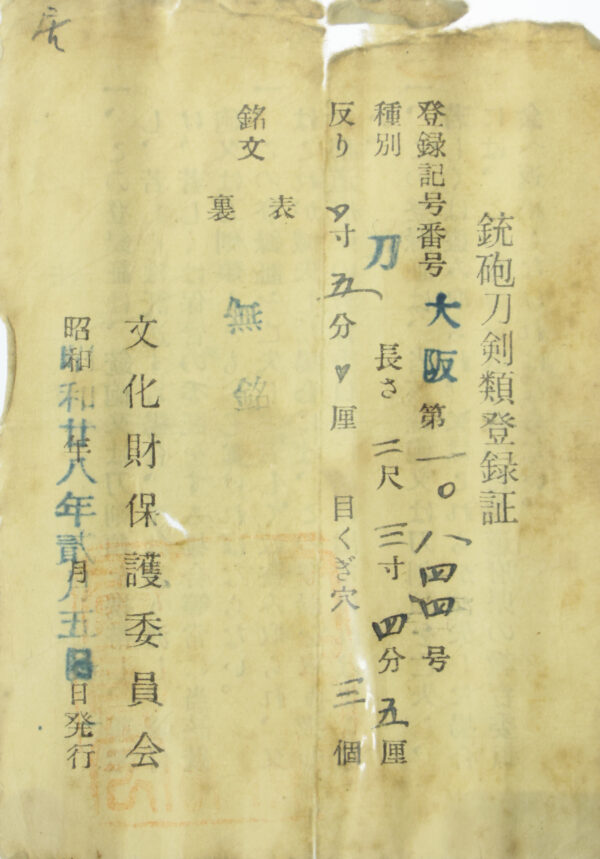 銃砲刀剣類登録証
登録記号番号 大阪 第一〇八四四号
種別 刀 長さ 二尺三寸四分五厘
反り 寸五分 厘 目くぎ穴 三個
銘文 表 無銘
裏
文化財保護委員会
昭和廿八年貳月五日発行